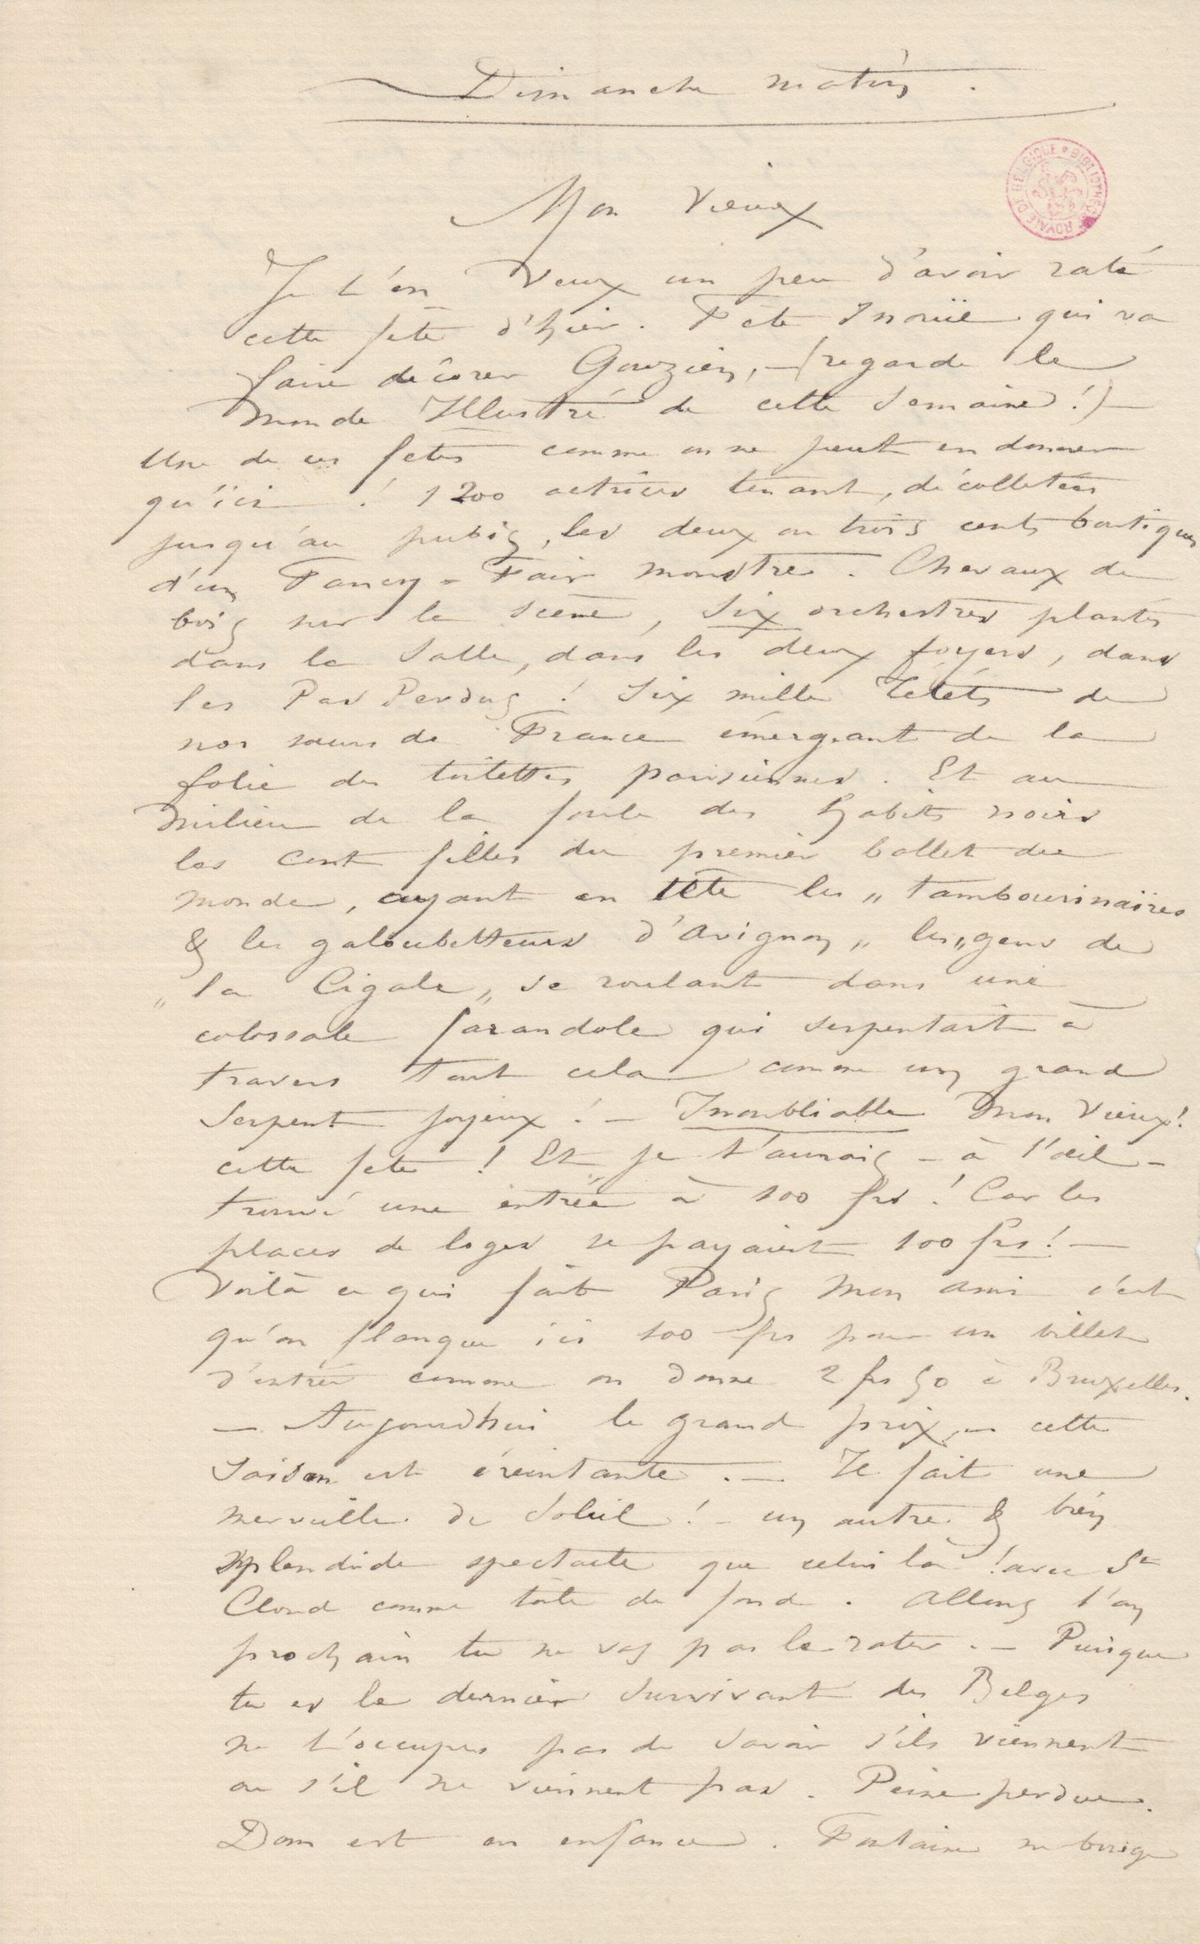 Dimanche matin.
BIBLIOTHÈQUE ROYALE DE BELGIQUE
Mon Vieux
Je t'en veux un peu d'avoir raté
cette fête d'hier. Fête Inouïe qui va
faire décorer Gouzien, – (regarde le
Monde Illustré de cette Semaine!) –
Une de ces fetes comme on ne peut en donner
qu'ici ! 1200 actrices tenant, décolletées
jusqu'au pubis, les deux ou trois cents boutiques
d'un Fancy-Fair monstre. Chevaux de
bois sur la scène, six orchestres plantés
dans la Salle, dans les deux foyers, dans
les Pas Perdus ! Six mille Tététs de
nos sœurs de France émergeant de la
folie des toilettes parisiennes. Et au
milieu de la foule des habits noirs
les cent filles du premier ballet du
monde, ayant en tête les „ tambourinaïres
& les galoubetteurs d'Avignon „ les „ gens de
„ la Cigale „ se roulant dans une
colossale farandole qui serpentait à
travers tout cela comme un grand
Serpent joyeux ! – Inoubliable Mon Vieux !
cette fete ! Et je t'aurais – à l'œil –
trouvé une entrée à 100 frs ! Car les
places de loges se payaient 100 frs ! –
Voilà ce qui fait Paris mon ami c'est
qu'on flanque ici 100 frs pour un billet
d'entrée comme on donne 2 frs 50 à Bruxelles.
– Aujourdhui le grand prix, – cette
saison est éreintante. – Il fait une
merveille de Soleil ! – un autre & bien
splendide spectacle que celui là ! avec St
Cloud comme toile de fond. Allons l'an
prochain tu ne vas pas le rater. – Puisque
tu es le dernier survivant des Belges
ne t'occupes pas de savoir s'ils viennent
ou s'il ne viennent pas. Peine perdue.
Dom est en enfance. Fontaine ne bouge